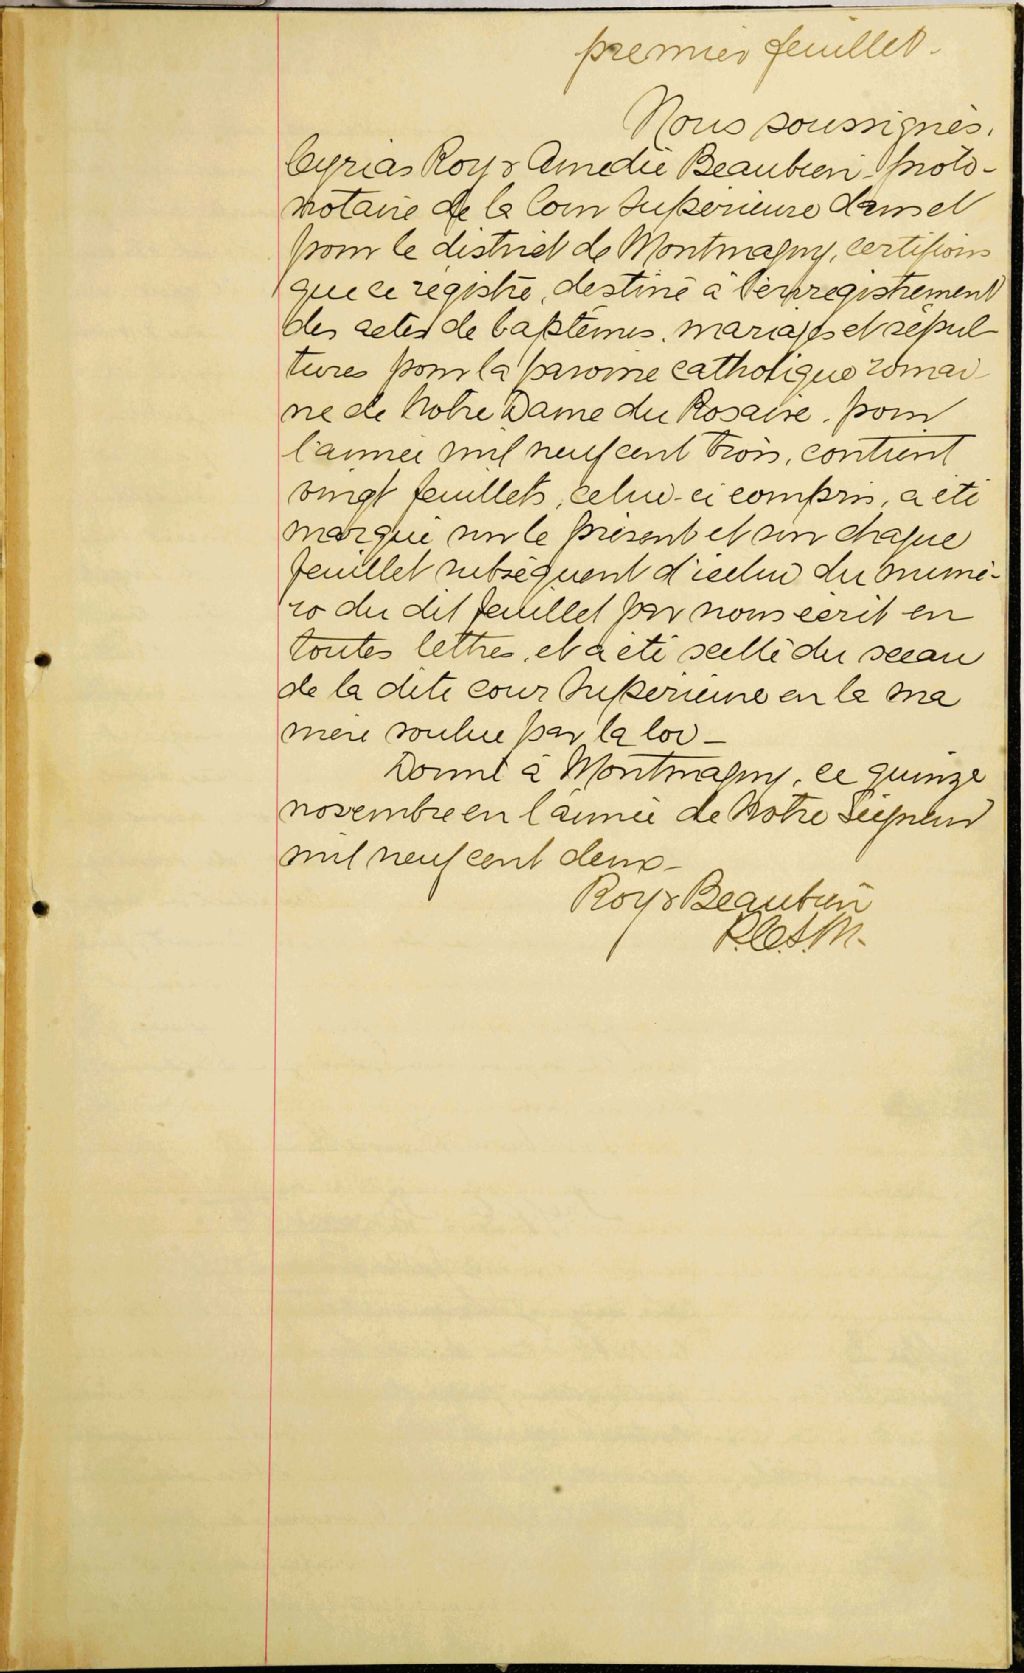 premier feuillet.
Nous soussignés,
Cyrias Roy & Amedée Beaubien, proto-
notaire de la Cour Supérieure dans et
pour le district de Montmagny, certifions
que ce régistre, destiné à l'enregistrement
des actes de baptêmes, mariages et sépul-
tures pour la paroisse catholique romai
ne de Notre Dame du Rosaire, pour
l'année mil neuf cent trois, contient
vingt feuillets, celui-ci compris, a été
marqué sur le présent et sur chaque
feuillet subséquent d'icelui du numé-
ro du dit feuillet par nous écrit en
toutes lettres, et a été scellé du sceau
de la dite cour Supérieure en la ma
nière voulue par la loi _
Donné à Montmagny, ce quinze
novembre en l'année de Notre Seigneur
mil neuf cent deux _
Roy & Beaubien
P.C.S.M.